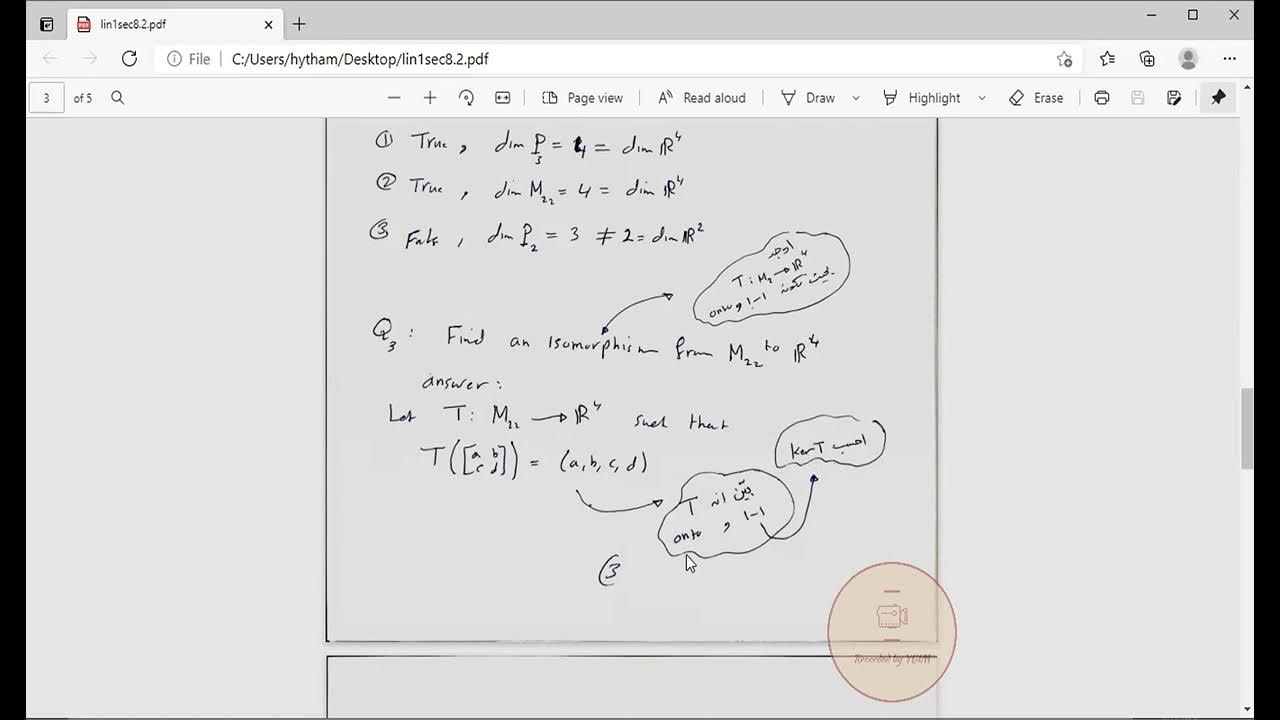 lin1sec8.2.pdf
File C:/Users/hytham/Desktop/lin1sec8.2.pdf
3 of 5 Page view Read aloud Draw Highlight Erase
① True , dim P₃ = 4 = dim ℝ⁴
② True , dim M₂₂ = 4 = dim ℝ⁴
③ Fals , dim P₂ = 3 ≠ 2 = dim ℝ²
اوجد
T: M₂ → ℝ⁴
بحيث تكون 1-1 و onto
Q₃ : Find an isomorphism from M₂₂ to ℝ⁴
answer:
Let T: M₂₂ → ℝ⁴ such that
T([a b
c d]) = (a, b, c, d)
احسب Ker T
بيّن انه T
1-1 و onto
3
Recorded by YGIM